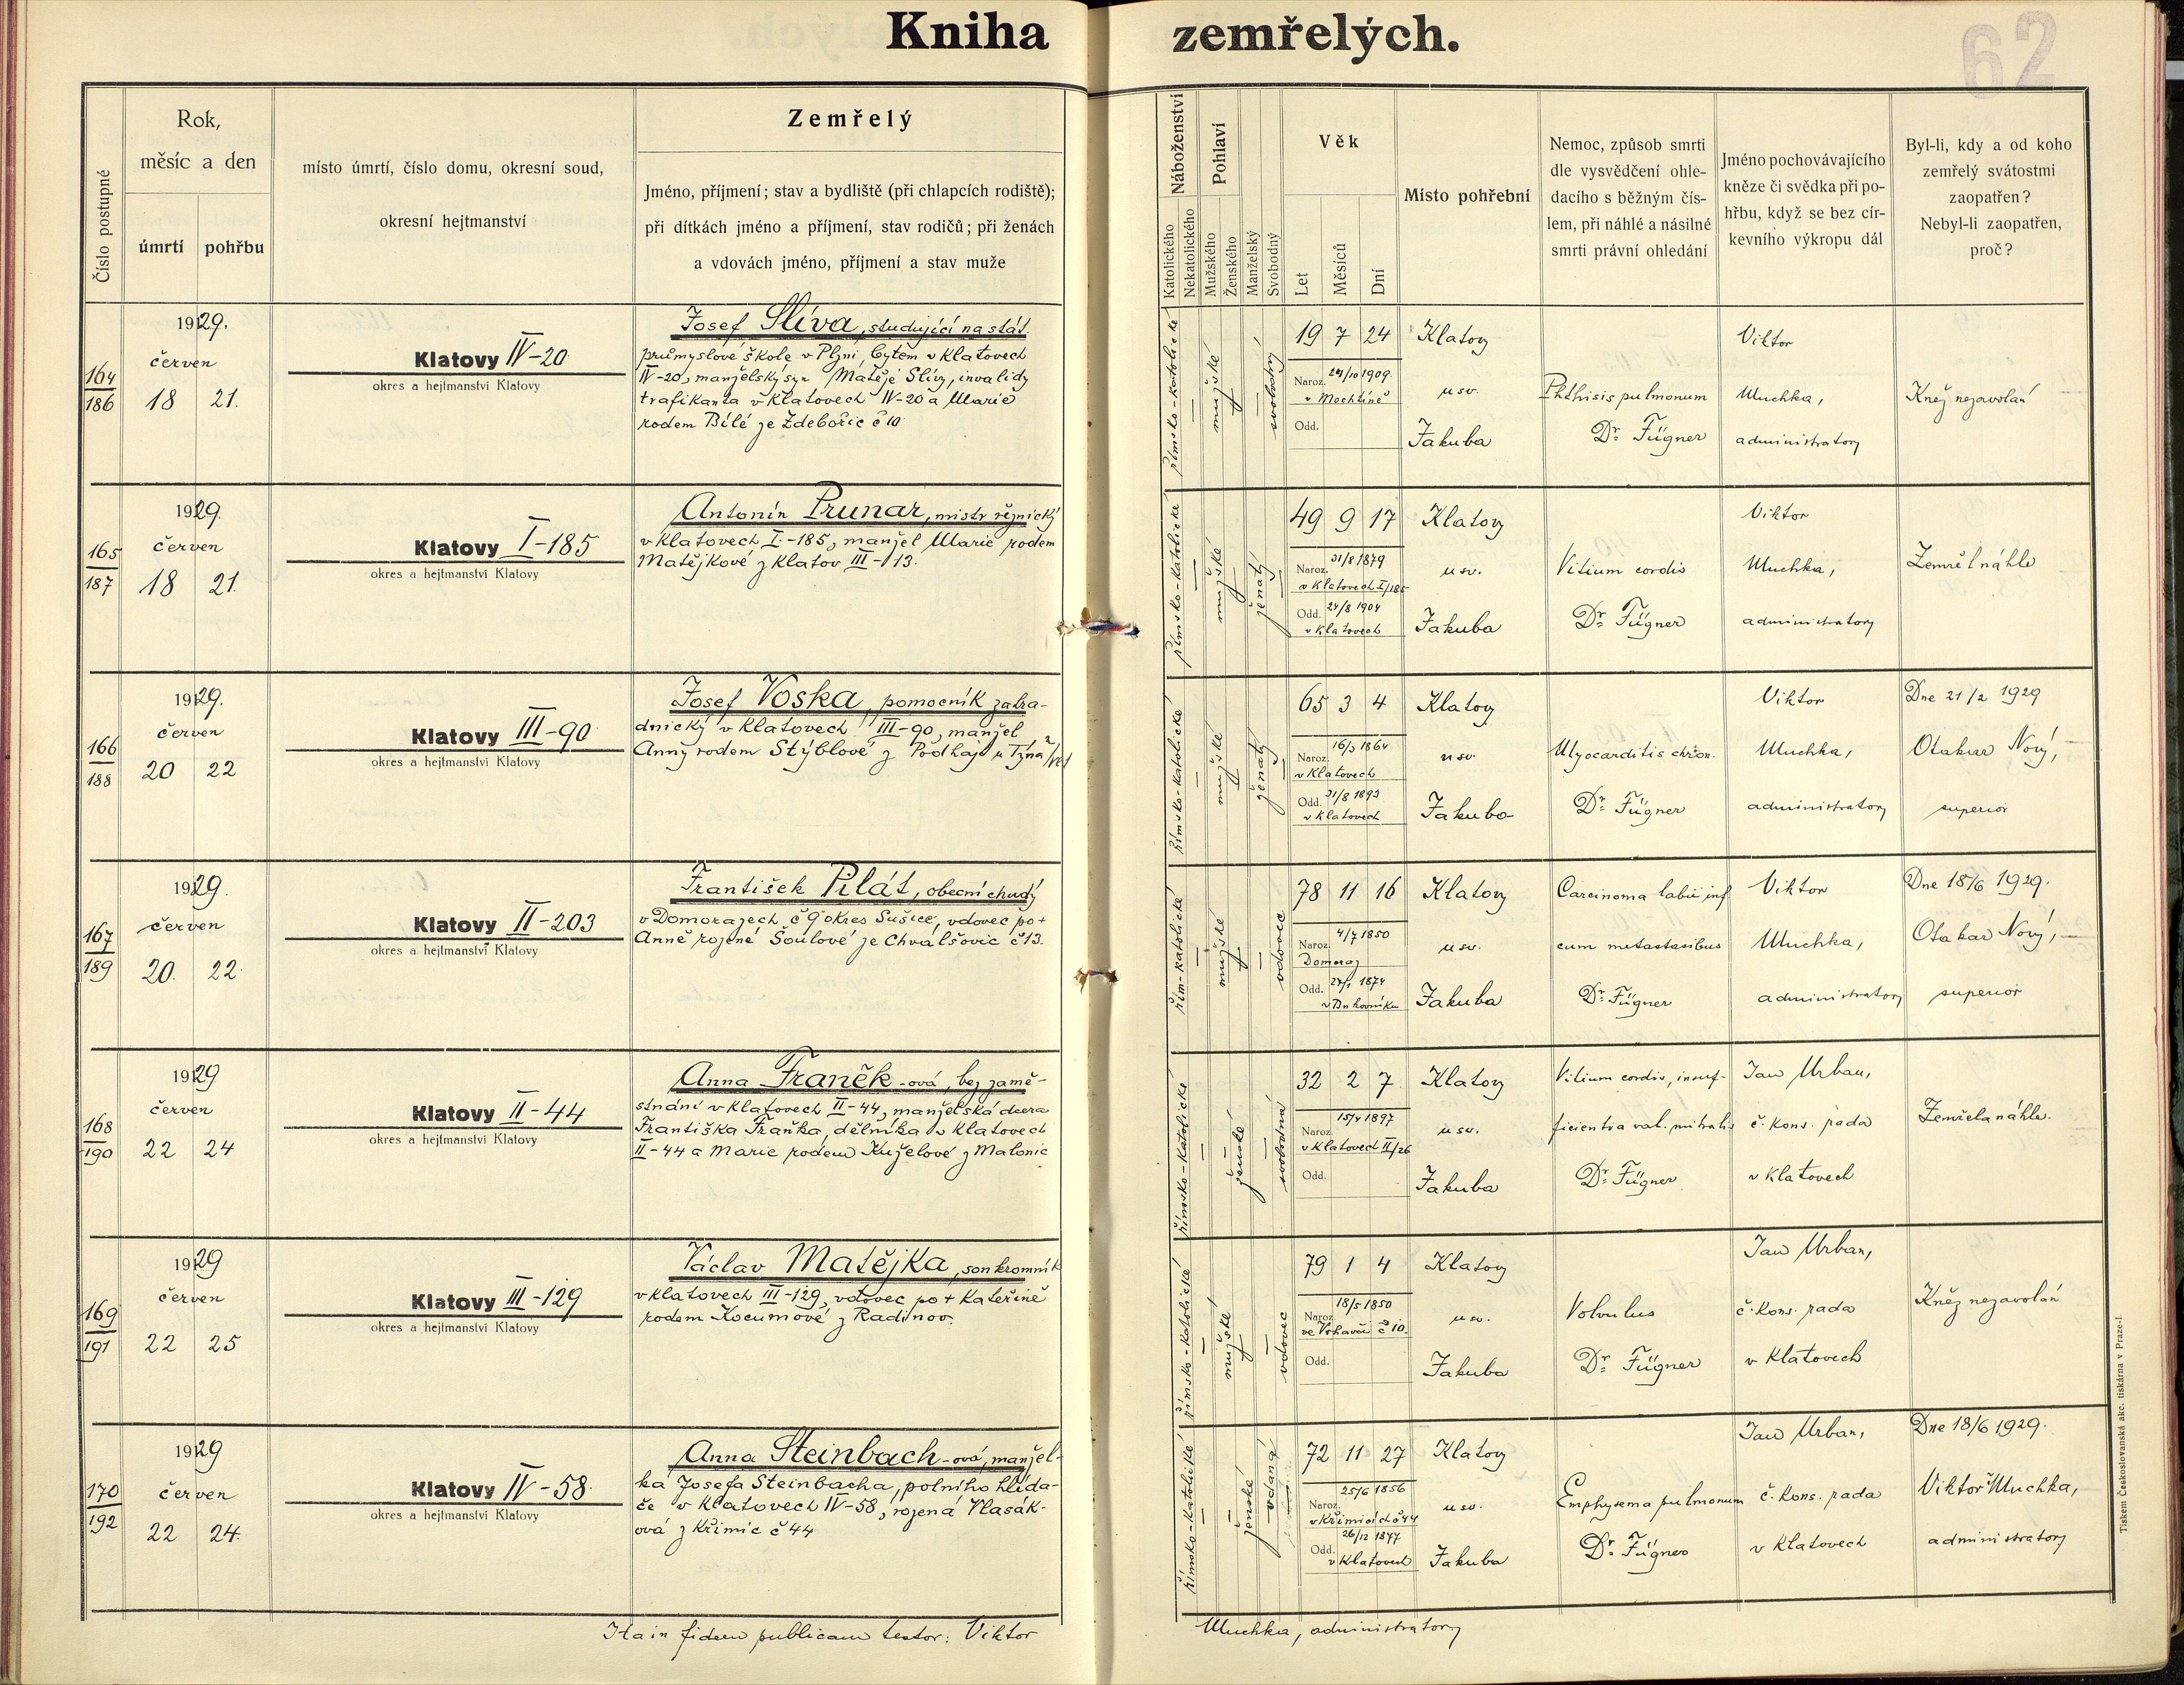 Kniha zemřelých.
62
Číslo postupné
Rok,
měsíc a den
úmrtí
pohřbu
místo úmrtí, číslo domu, okresní soud,
okresní hejtmanství
Zemřelý
Jméno, příjmení; stav a bydliště (při chlapcích rodiště);
při dítkách jméno a příjmení, stav rodičů; při ženách
a vdovách jméno, příjmení a stav muže
Náboženství
Katolického
Nekatolického
Pohlaví
Mužského
Ženského
Manželský
Svobodný
Věk
Let
Měsíců
Dní
Místo pohřební
Nemoc, způsob smrti
dle vysvědčení ohle-
dacího s běžným čís-
lem, při náhlé a násilné
smrti právní ohledání
Jméno pochovávajícího
kněze či svědka při po-
hřbu, když se bez cír-
kevního výkropu dál
Byl-li, kdy a od koho
zemřelý svátostmi
zaopatřen?
Nebyl-li zaopatřen,
proč?
164
186
1929.
červen
18 21.
Klatovy IV-20
okres a hejtmanství Klatovy
Josef Slíva, studující na stát.
průmyslové škole v Plzni, bytem v Klatovech
IV-20, manželský syn Matěje Slívy, invalidy
trafikanta v Klatovech IV-20 a Marie
rodem Bílé ze Zdebořic č 10
římsko-katolické
mužské
svobodný
19 7 24
Naroz. 24/10 1909.
v Mochtíně
Odd.
Klatovy
u sv.
Jakuba
Phthisis pulmonum
Dr. Fügner
Viktor
Muchka,
administrator
Kněz nezavolán
165
187
1929.
červen
18 21.
Klatovy I-185
okres a hejtmanství Klatovy
Antonín Prunar, mistr řeznický
v Klatovech I.-185, manžel Marie rodem
Matějkové z Klatov III-113.
římsko-katolické
mužské
ženatý
49 9 17
Naroz. 31/8 1879
v Klatovech I/185
Odd. 24/8 1904
v Klatovech
Klatovy
u sv.
Jakuba
Vitium cordis
Dr. Fügner
Viktor
Muchka,
administrator
Zemřel náhle
166
188
1929.
červen
20 22
Klatovy III-90
okres a hejtmanství Klatovy
Josef Voska, pomocník zahra-
dnický v Klatovech III-90, manžel
Anny rodem Stýblové z Podháje u Týna
římsko-katolické
mužské
ženatý
65 3 4
Naroz. 16/3 1864
v Klatovech
Odd. 31/8 1893
v Klatovech
Klatovy
u sv.
Jakuba
Myocarditis chron.
Dr. Fügner
Viktor
Muchka,
administrator
Dne 21/2 1929
Otakar Nový,
superior
167
189
1929.
červen
20. 22.
Klatovy II-203
okres a hejtmanství Klatovy
František Pilát, obecní chudý
v Domorazech č 9 okres Sušice, vdovec po +
Anně rozené Šoulové ze Chvalšovic č 13.
řím-katolické
mužské
vdovec
78 11 16
Naroz. 4/7 1850
Domoraz
Odd. 1874
Klatovy
u sv.
Jakuba
Carcinoma labii inf
cum metastasibus
Dr. Fügner
Viktor
Muchka,
administrator
Dne 18/6 1929.
Otakar Nový,
superior
168
190
1929
červen
22 24
Klatovy II-44
okres a hejtmanství Klatovy
Anna Franěk-ová, bez zamě-
stnání v Klatovech II-44, manželská dcera
Františka Fraňka, dělníka v Klatovech
II-44 a Marie rodem Kuželové z Malonic
římsko-katolické
ženské
svobodná
32 2 7
Naroz. 15/4 1897
v Klatovech II/26
Odd.
Klatovy
u sv.
Jakuba
Vitium cordis, insuf-
ficientia val. mitralis
Dr. Fügner
Jan Urban,
č. kons. rada
v Klatovech
Zemřela náhle.
169
191
1929
červen
22 25
Klatovy III-129
okres a hejtmanství Klatovy
Václav Matějka, soukromník
v Klatovech III-129, vdovec po + Kateřině
rodem Kocumové z Radinov.
římsko-katolické
mužské
vdovec
79 1 4
Naroz. 18/5 1850
ve Vrhavči č 10.
Odd.
Klatovy
u sv.
Jakuba
Volvulus
Dr. Fügner
Jan Urban,
č. kons. rada
v Klatovech
Kněz nezavolán
170
192
1929
červen
22 24.
Klatovy IV-58.
okres a hejtmanství Klatovy
Anna Steinbach-ová, manžel-
ka Josefa Steinbacha, polního hlída-
če v Klatovech IV-58, rozená Vlasák-
ová z Křimic č 44
římsko-katolické
ženské
vdaná
72 11 27
Naroz. 25/6 1856
v Křimicích č 44
Odd. 26/12 1877
v Klatovech
Klatovy
u sv.
Jakuba
Emphysema pulmonum
Dr. Fügner
Jan Urban,
č. kons. rada
v Klatovech
Dne 18/6 1929.
Viktor Muchka,
administrator
Ita in fidem publicam testor: Viktor Muchka, administrator
Tiskem Českoslovanská akc. tiskárna v Praze-I.